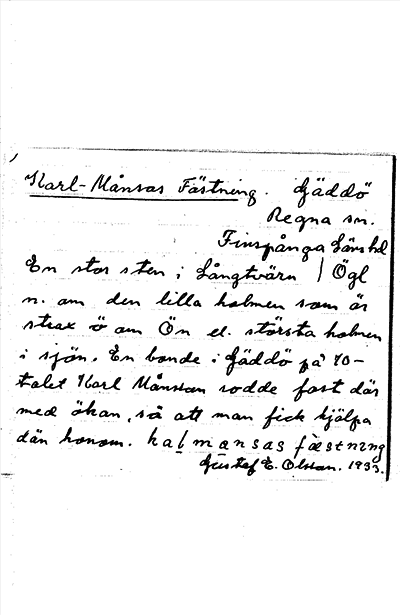 Karl-Månsas Fästning. Gäddö
Regna sn.
Finspånga läns hd
En stor sten i Långtvärn / Ögl
n. om den lilla holmen som är
strax ö om Ön el. största holmen
i sjön. En bonde i Gäddö på 70-
talet Karl Månsson rodde fast där
med ökan, så att man fick hjälpa
dän honom. kaḷmansas fæstning
Gustaf E. Olsson. 1933.